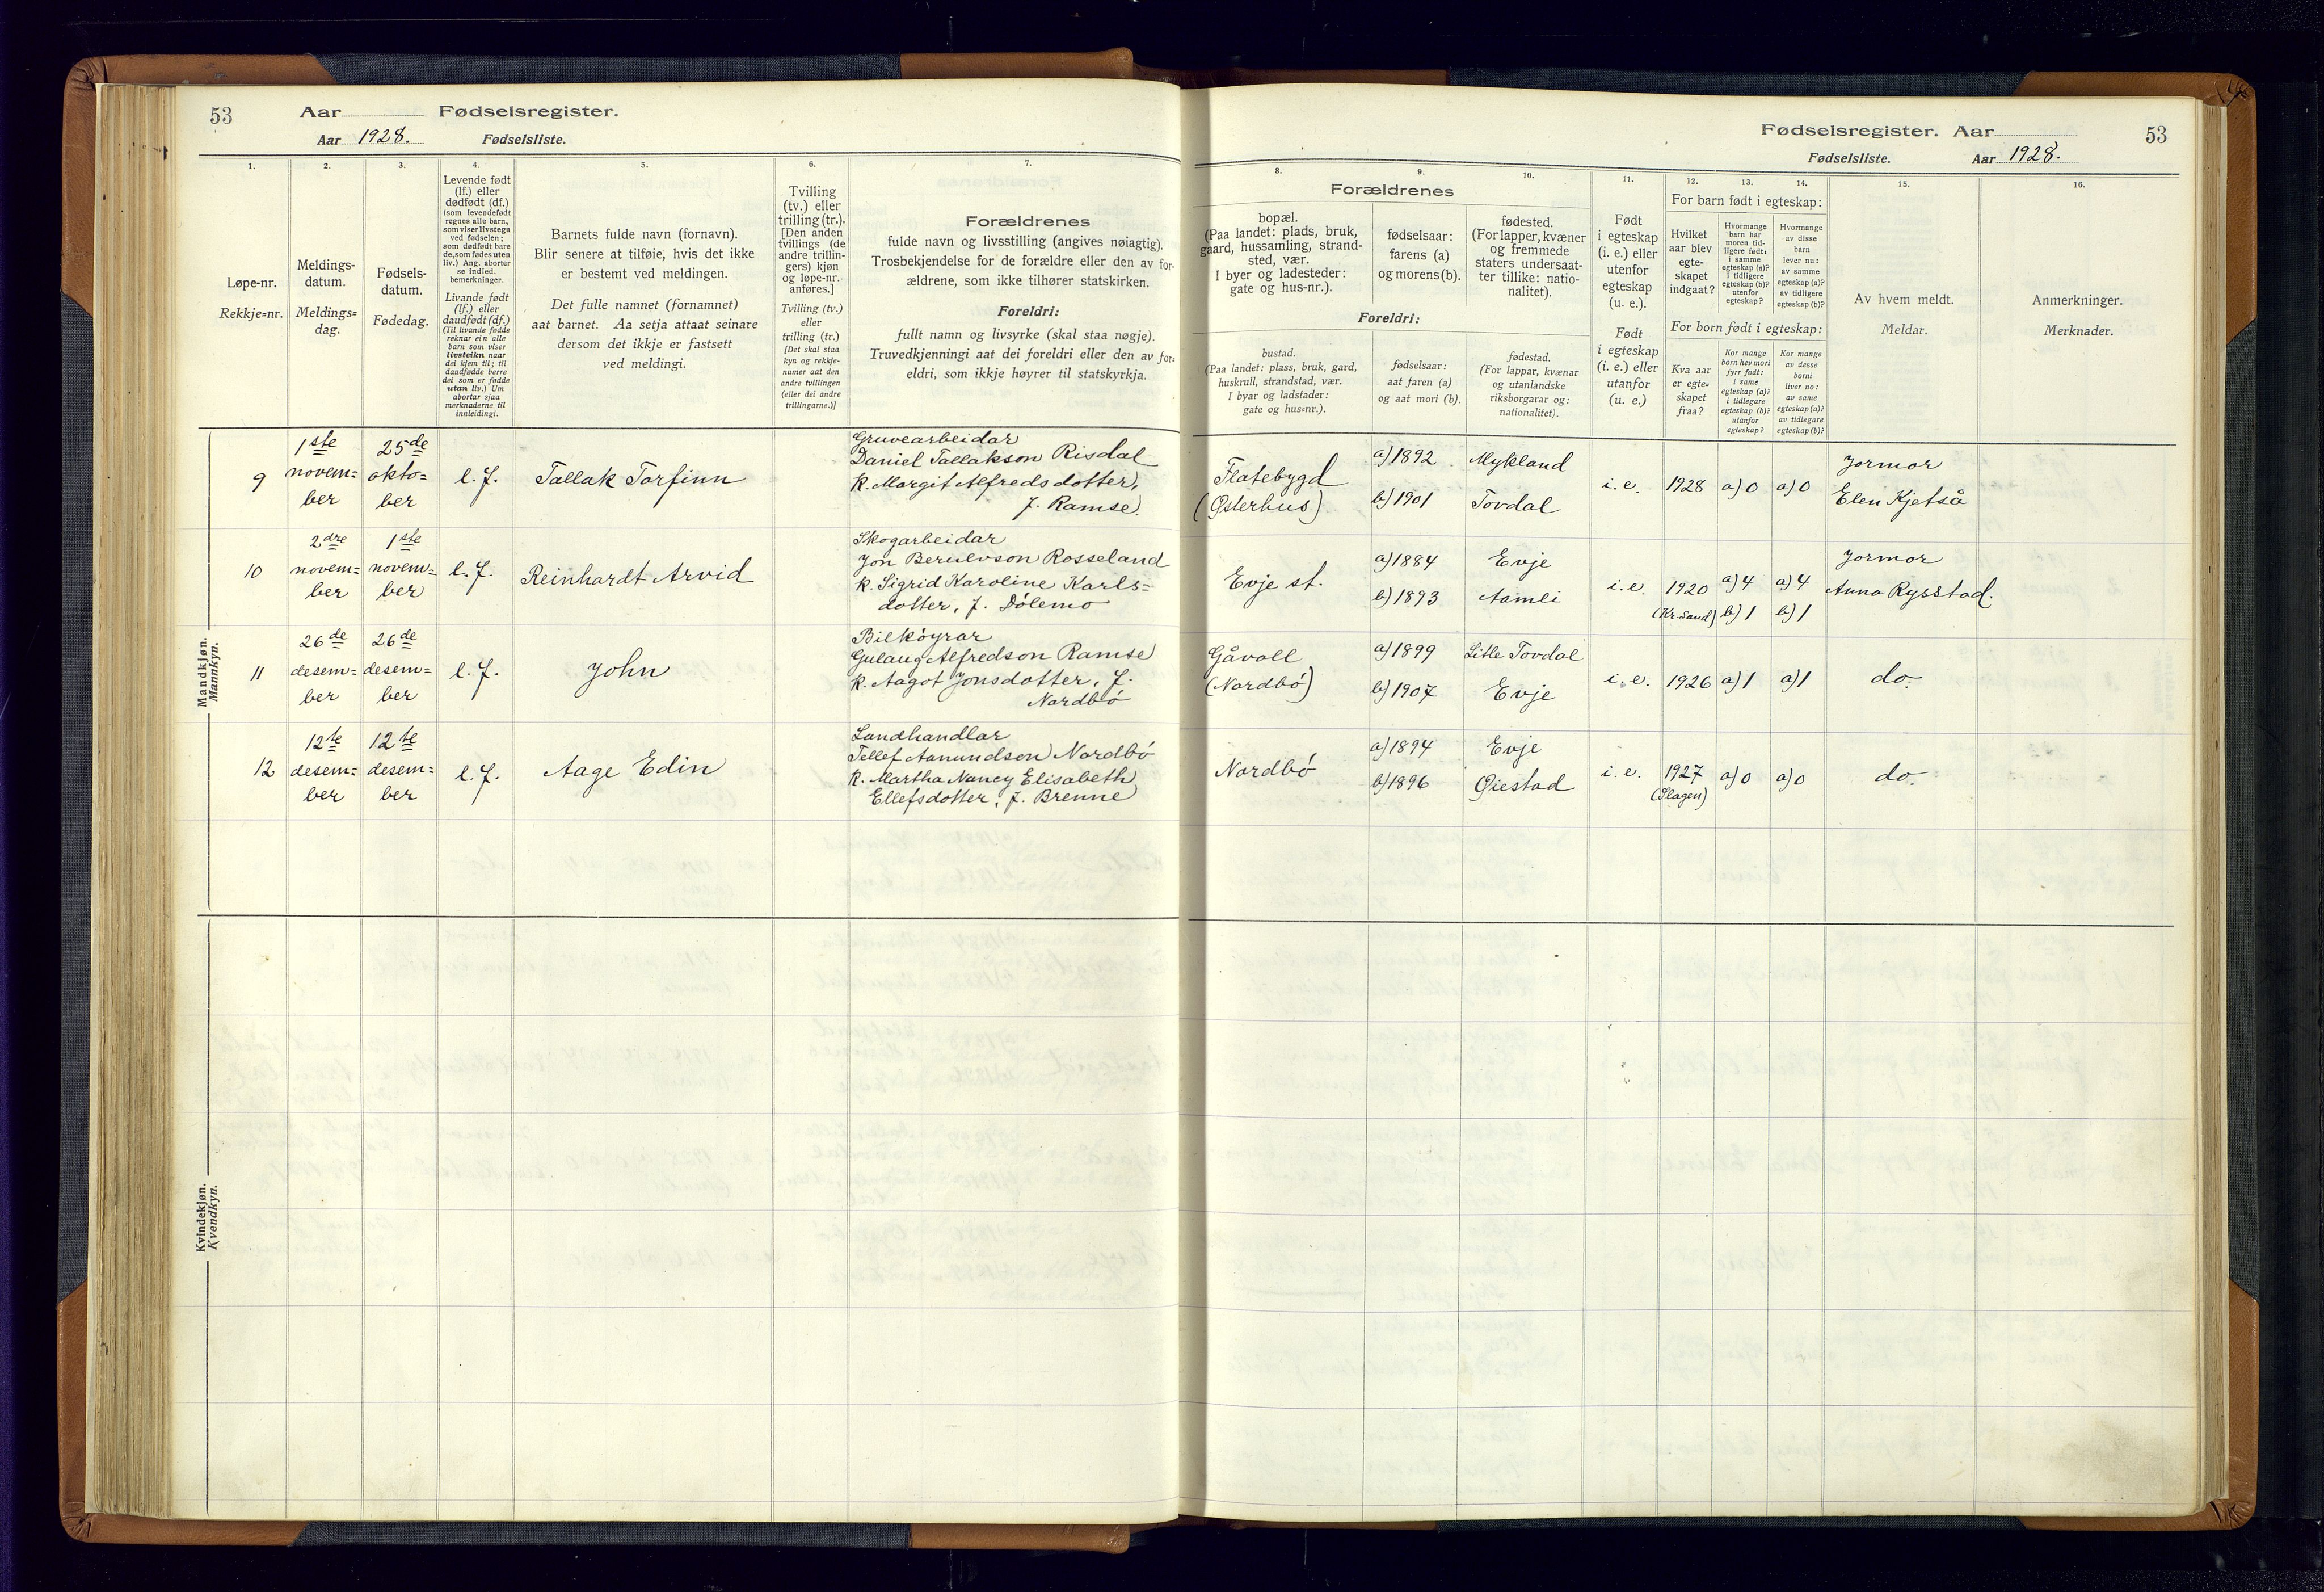 53
Aar
Fødselsregister.
Aar 1928.
Fødselsliste.
1.
2.
3.
4.
5.
6.
7.
Løpe-nr.
Rekkje=nr.
Meldings-
datum.
Meldings=
dag.
Fødsels-
datum.
Fødedag.
Levende født
(lf.) eller
dødfødt (df.)
(som levendefødt
regnes alle barn,
som viser livstegn
ved fødselen;
som dødfødt bare
de, som fødes uten
liv.) Ang. aborter
se indled.
bemerkninger.
Livande født
(lf.) eller
daudfødt (df.)
(Til livande fødde
reknar ein alle
barn som viser
livsteikn naar
dei kjem til; til
daudfødde berre
dei som er fødde
utan liv.) Um
abortar sjaa
merknaderne til
innleidingi.
Barnets fulde navn (fornavn).
Blir senere at tilføie, hvis det ikke
er bestemt ved meldingen.
Det fulle namnet (fornamnet)
aat barnet. Aa setja attaat seinare
dersom det ikkje er fastsett
ved meldingi.
Tvilling
(tv.) eller
trilling (tr.).
[Den anden
tvillings (de
andre trillin-
gers) kjøn
og løpe-nr.
anføres.]
Tvilling (tv.)
eller
trilling (tr.)
[Det skal staa
kyn og rekkje-
numer aat den
andre tvillingen
(eller dei andre
trillingarne.)]
Forældrenes
fulde navn og livsstilling (angives nøiagtig).
Trosbekjendelse for de forældre eller den av for-
ældrene, som ikke tilhører statskirken.
Foreldri:
fullt namn og livsyrke (skal staa nøgje).
Truvedkjenningi aat dei foreldri eller den av for=
eldri, som ikkje høyrer til statskyrkja.
Mandkjøn.
Mannkyn.
9
1ste
novem=
ber
25de
okto=
ber
l. f.
Tallak Torfinn
Gruvearbeidar
Daniel Tallakson Risdal
K. Margit Alfredsdotter,
f. Ramse
10
2dre
novem=
ber
1ste
novem=
ber
l. f.
Reinhardt Arvid
Skogarbeidar
Jon Berulvson Rosseland
K. Sigrid Karoline Karls=
dotter, f. Dölemo
11
26de
desem=
ber
26de
desem=
ber
l. f.
John
Bilköyrar
Gulaug Alfredson Ramse
K. Aagot Jonsdotter, f.
Nordbö
12
12te
desem=
ber
12te
desem=
ber
l. f.
Aage Edin
Landhandlar
Tellef Aamundson Nordbö
K. Martha Nancy Elisabeth
Ellefsdotter, f. Brenne
Kvindekjøn.
Kvendkyn.
Fødselsregister. Aar
53
Fødselsliste.
Aar 1928.
8.
9.
10.
11.
12.
13.
14.
15.
16.
Forældrenes
bopæl.
(Paa landet: plads, bruk,
gaard, hussamling, strand-
sted, vær.
I byer og ladesteder:
gate og hus-nr.).
fødselsaar:
farens (a)
og morens (b).
fødested.
(For lapper, kvæner
og fremmede
staters undersaat-
ter tillike: natio-
nalitet).
Foreldri:
bustad.
(Paa landet: plass, bruk, gard,
huskrull, strandstad, vær.
I byar og ladstader:
gate og hus=nr.).
fødselsaar:
aat faren (a)
og aat mori (b).
fødestad.
(For lappar, kvænar
og utanlandske
riksborgarar og:
nationalitet).
Født
i egteskap
(i. e.) eller
utenfor
egteskap
(u. e.).
Født
i egteskap
(i. e.) eller
utanfor
(u. e.)
For barn født i egteskap:
Hvilket
aar blev
egte-
skapet
indgaat?
Hvormange
barn har
moren tid-
ligere født:
i samme
egteskap (a)?
i tidligere
egteskap (b)?
utenfor
egteskap?
Hvormange
av disse
barn
lever nu:
av samme
egteskap (a)?
av tidligere
egteskap (b)?
For born født i egteskap:
Kva aar
er egte=
skapet
fraa?
Kor mange
born hev mori
fyrr født:
i same
egteskap (a)?
i tidlegare
egteskap (b)?
utanfor
egteskap?
Kor mange
av desse
borni
liver no:
av same
egteskap (a)?
av tidlegare
egteskap (b)?
Av hvem meldt.
Meldar.
Anmerkninger.
Merknader.
Flatebygd
(Østerhus)
a) 1892
b) 1901
Mykland
Tovdal
i. e.
1928
a) 0
a) 0
Jormor
Elen Kjetså
Evje st.
a) 1884
b) 1893
Evje
Aamli
i. e.
1920
(Kr.sand)
a) 4
b) 1
a) 4
b) 1
Jormor
Anna Rysstad.
Gåvoll
(Nordbö)
a) 1899
b) 1907
Litle Tovdal
Evje
i. e.
1926
a) 1
a) 1
do.
Nordbö
a) 1894
b) 1896
Evje
Øiestad
i. e.
1927
(Slagen)
a) 0
a) 0
do.